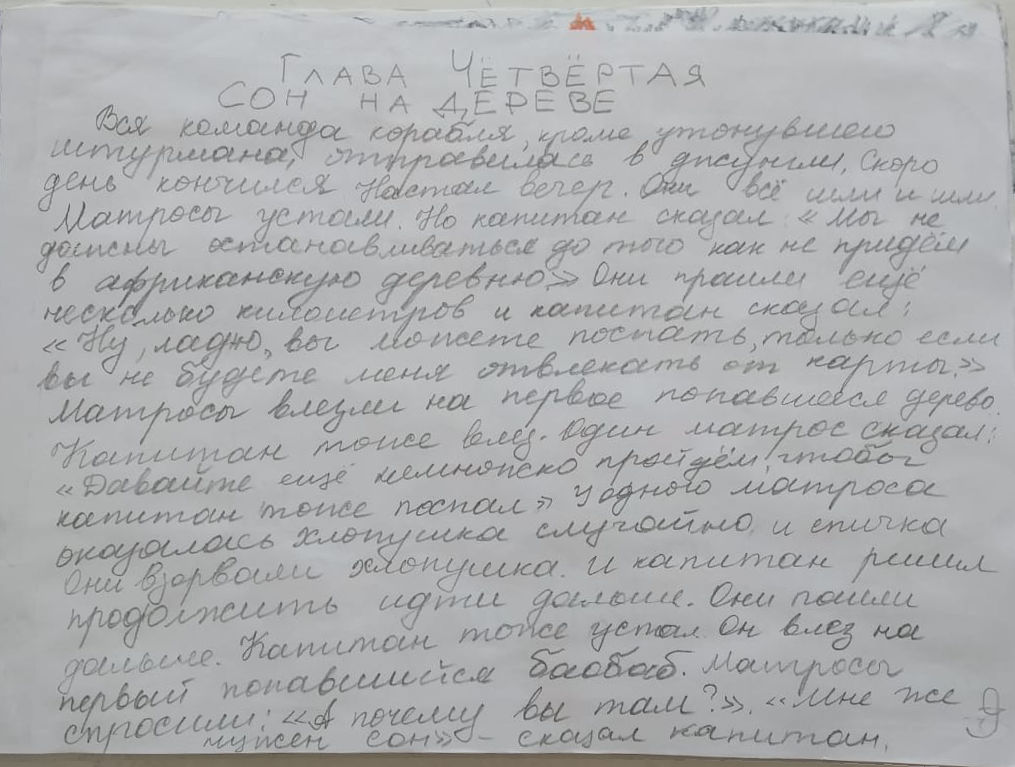 ГЛАВА ЧЁТВЁРТАЯ
СОН НА ДЕРЕВЕ
Вся команда корабля, кроме утонувшего
штурмана, отправилась в джунгли, Скоро
день кончился Настал вечер. Они всё шли и шли.
Матросы устали. Но капитан сказал: «Мы не
должны останавливаться до того как не придём
в африканскую деревню» Они прошли ещё
несколько километров и капитан сказал:
«Ну, ладно, вы можете поспать, только если
вы не будете меня отвлекать от карты.»
Матросы влезли на первое попавшееся дерево.
Капитан тоже влез. Один матрос сказал:
«Давайте ещё немножко пройдём, чтобы
капитан тоже поспал» У одного матроса
оказалась хлопушка случайно, и спичка
Они взорвали хлопушка. И капитан решил
продолжить идти дальше. Они пошли
дальше. Капитан тоже устал. Он влез на
первый попавшийся баобаб. Матросы
спросили: «А почему вы там?». «Мне же
нужен сон» - сказал капитан.